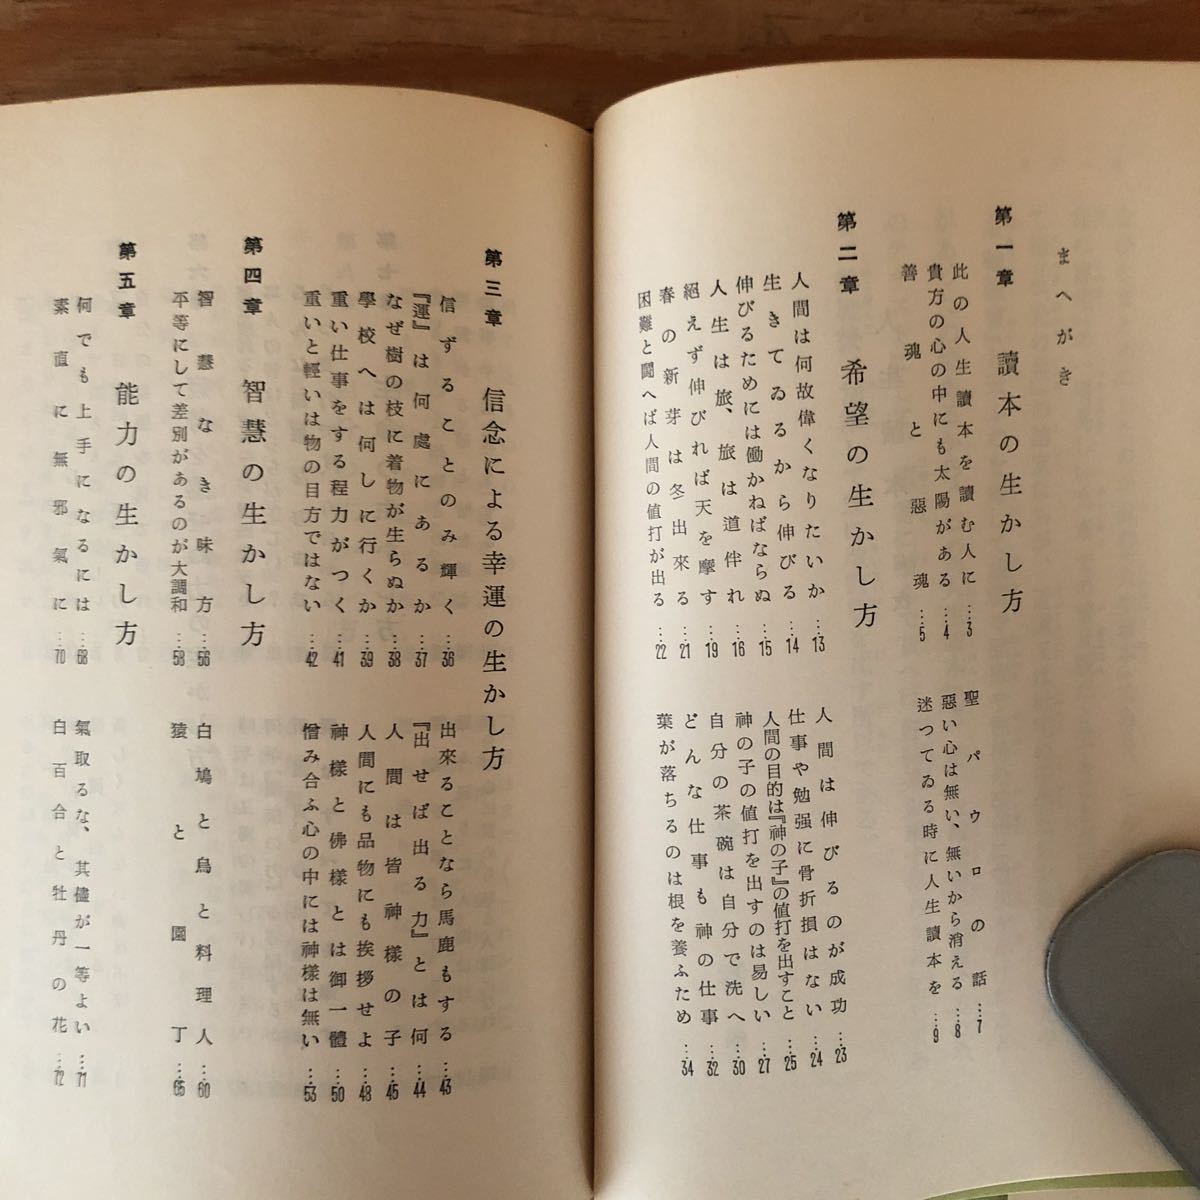 まへがき
第一章 讀本の生かし方
此の人生讀本を讀む人に…3
貴方の心の中にも太陽がある…4
善魂と惡魂…5
聖パウロの話…7
惡い心は無い、無いから消える…8
迷つてゐる時に人生讀本を…9
第二章 希望の生かし方
人間は何故偉くなりたいか…13
生きてゐるから伸びる…14
伸びるためには働かねばならぬ…15
人生は旅、旅は道伴れ…16
絕えず伸びれば天を摩す…19
春の新芽は冬出來る…21
困難と闘へば人間の値打が出る…22
人間は伸びるのが成功…23
仕事や勉强に骨折損はない…24
人間の目的は『神の子』の値打を出すこと…25
神の子の値打を出すのは易しい…27
自分の茶碗は自分で洗へ…30
どんな仕事も神の仕事…32
葉が落ちるのは根を養ふため…34
第三章 信念による幸運の生かし方
信ずることのみ輝く…36
『運』は何處にあるか…37
なぜ樹の枝に着物が生らぬか…38
學校へは何しに行くか…39
重い仕事をする程力がつく…41
重いと輕いは物の目方ではない…42
出來ることなら馬鹿もする…43
『出せば出る力』とは何…44
人間は皆神樣の子…45
人間にも品物にも挨拶せよ…48
神樣と佛樣とは御一體…50
憎み合ふ心の中には神樣は無い…53
第四章 智慧の生かし方
智慧なき味方…56
平等にして差別があるのが大調和…58
白鳩と烏と料理人…60
猿と園丁…65
第五章 能力の生かし方
何でも上手になるには…68
素直に無邪氣に…70
氣取るな、其儘が一等よい…71
白百合と牡丹の花…72